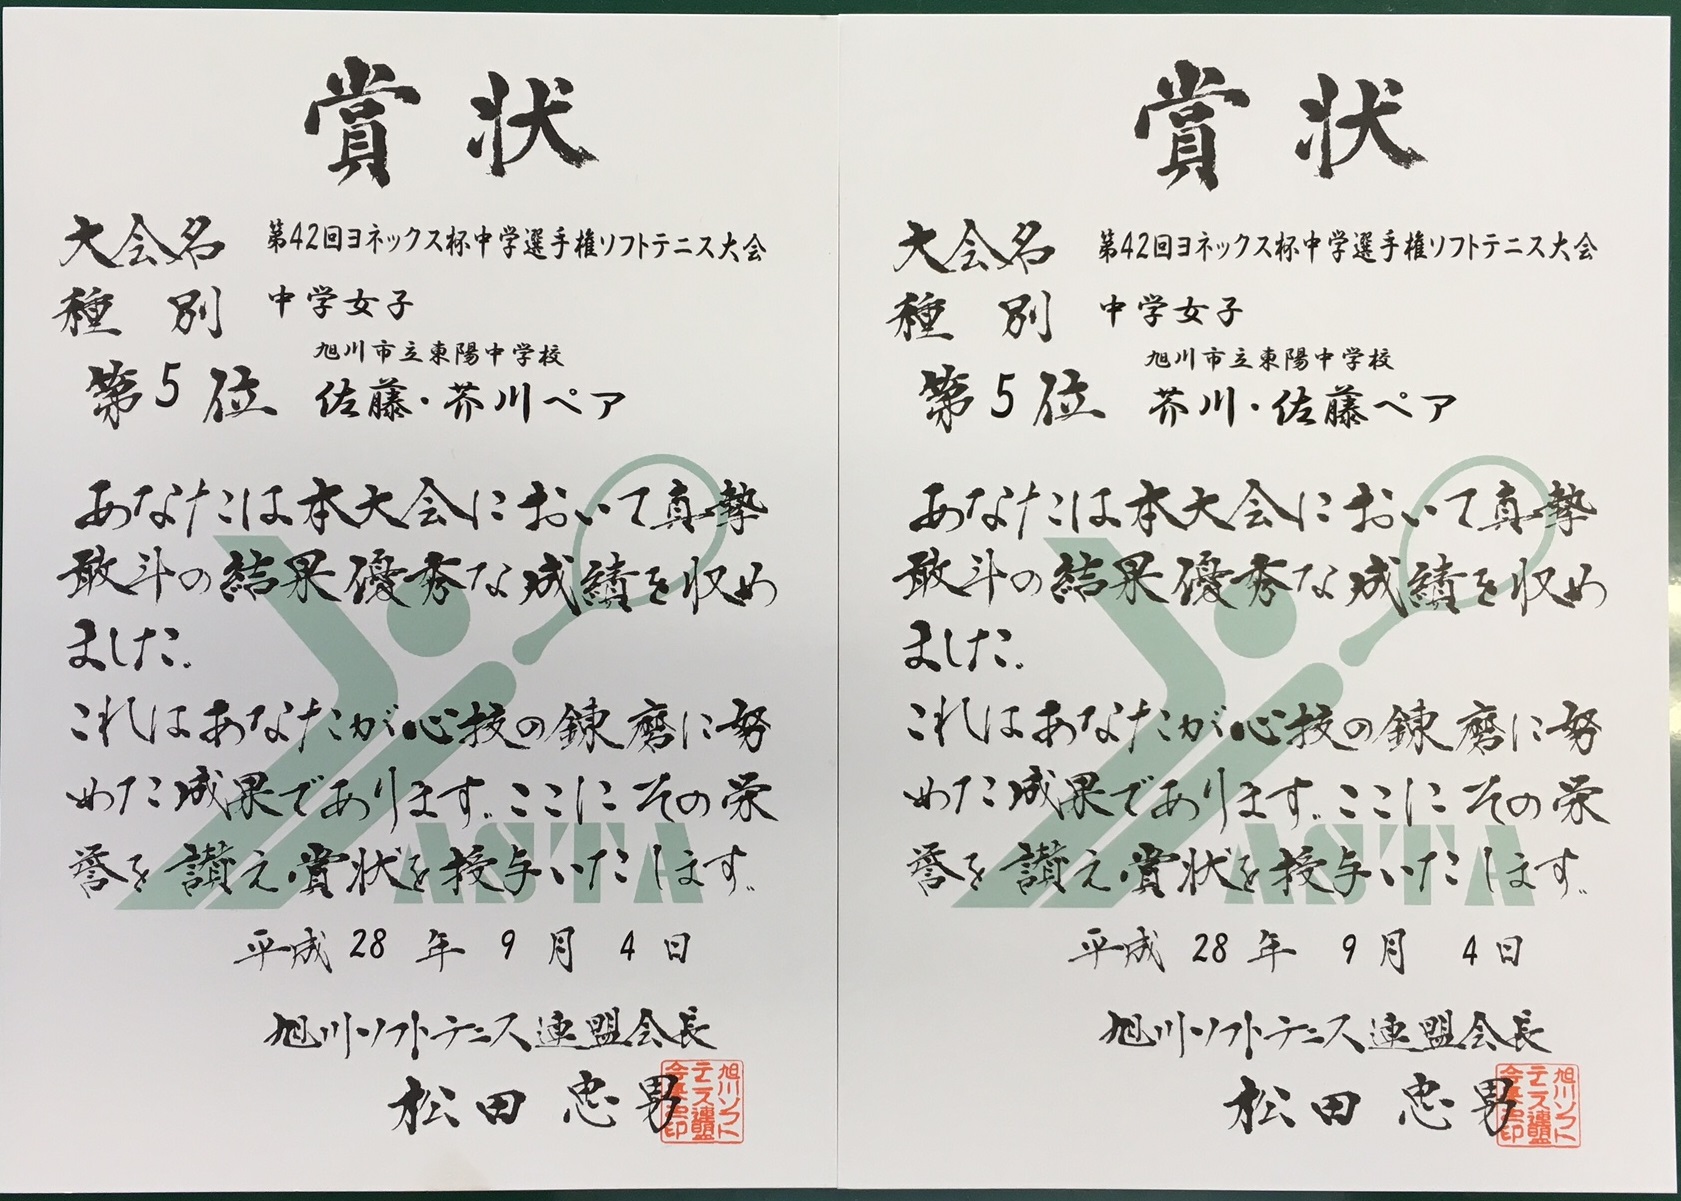 賞状
大会名 第42回ヨネックス杯中学選手権ソフトテニス大会
種別 中学女子
旭川市立東陽中学校
第5位 佐藤・芥川ペア
あなたは本大会において真摯
敢斗の結果優秀な成績を収め
ました。
これはあなたが心技の錬磨に努
めた成果であります。ここにその栄
誉を讃え賞状を授与いたします。
ASTA
平成28年9月4日
旭川ソフトテニス連盟会長
松田忠男
旭川ソフト
テニス連盟
会長之印
賞状
大会名 第42回ヨネックス杯中学選手権ソフトテニス大会
種別 中学女子
旭川市立東陽中学校
第5位 芥川・佐藤ペア
あなたは本大会において真摯
敢斗の結果優秀な成績を収め
ました。
これはあなたが心技の錬磨に努
めた成果であります。ここにその栄
誉を讃え賞状を授与いたします。
ASTA
平成28年9月4日
旭川ソフトテニス連盟会長
松田忠男
旭川ソフト
テニス連盟
会長之印